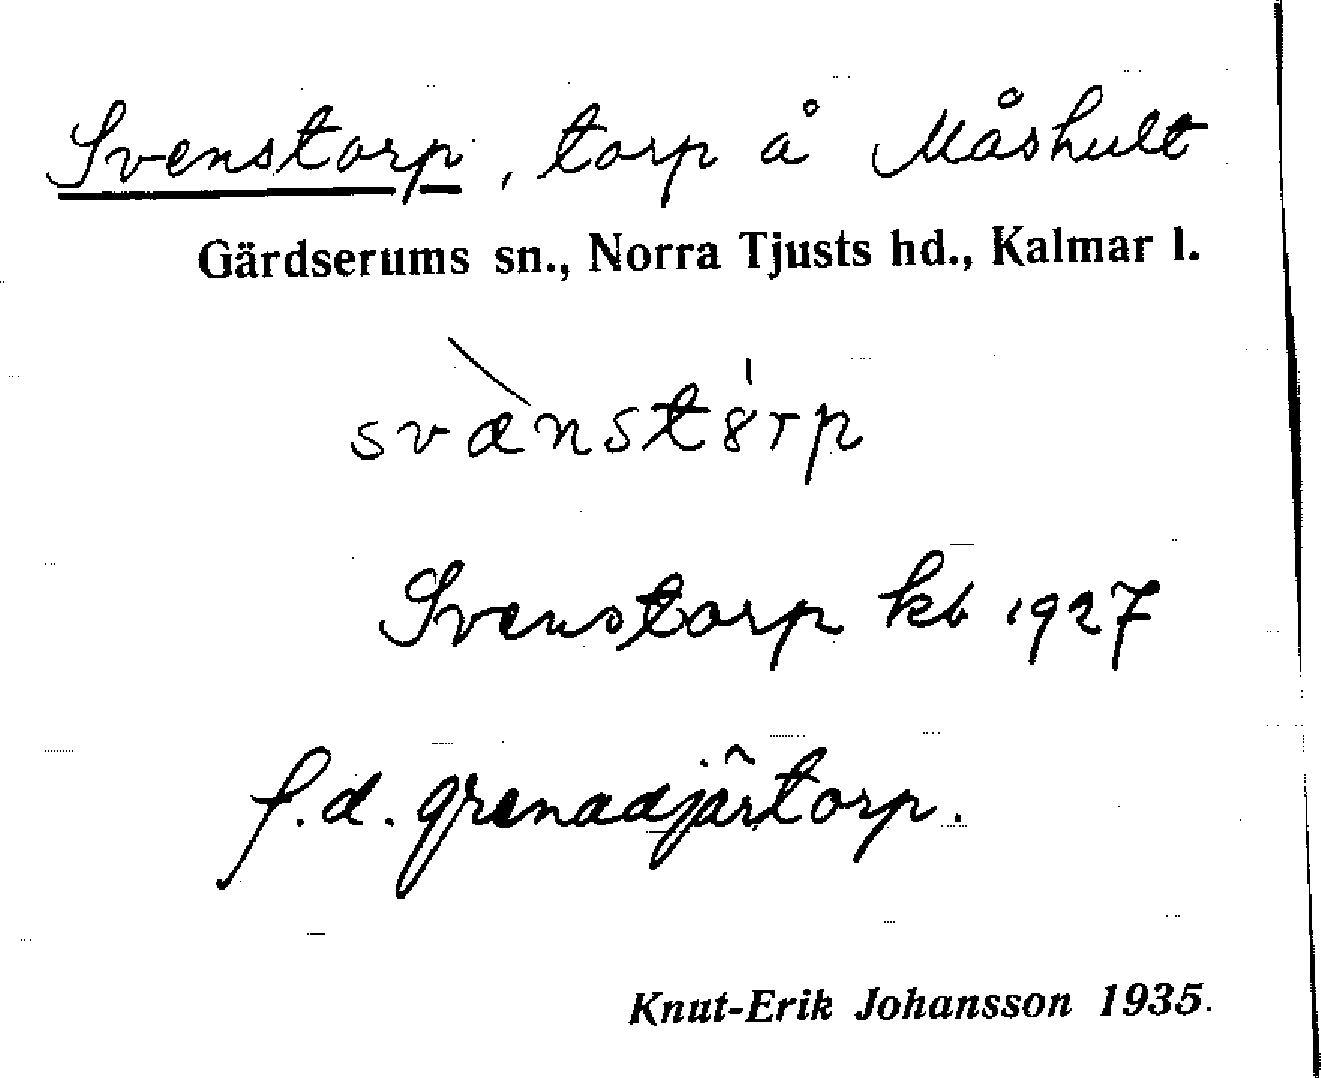 Svenstorp, torp å Måshult
Gärdserums sn., Norra Tjusts hd., Kalmar l.
svæ̀nst8́rp
Svenstorp kb 1927
f.d. grenadjärtorp.
Knut-Erik Johansson 1935.